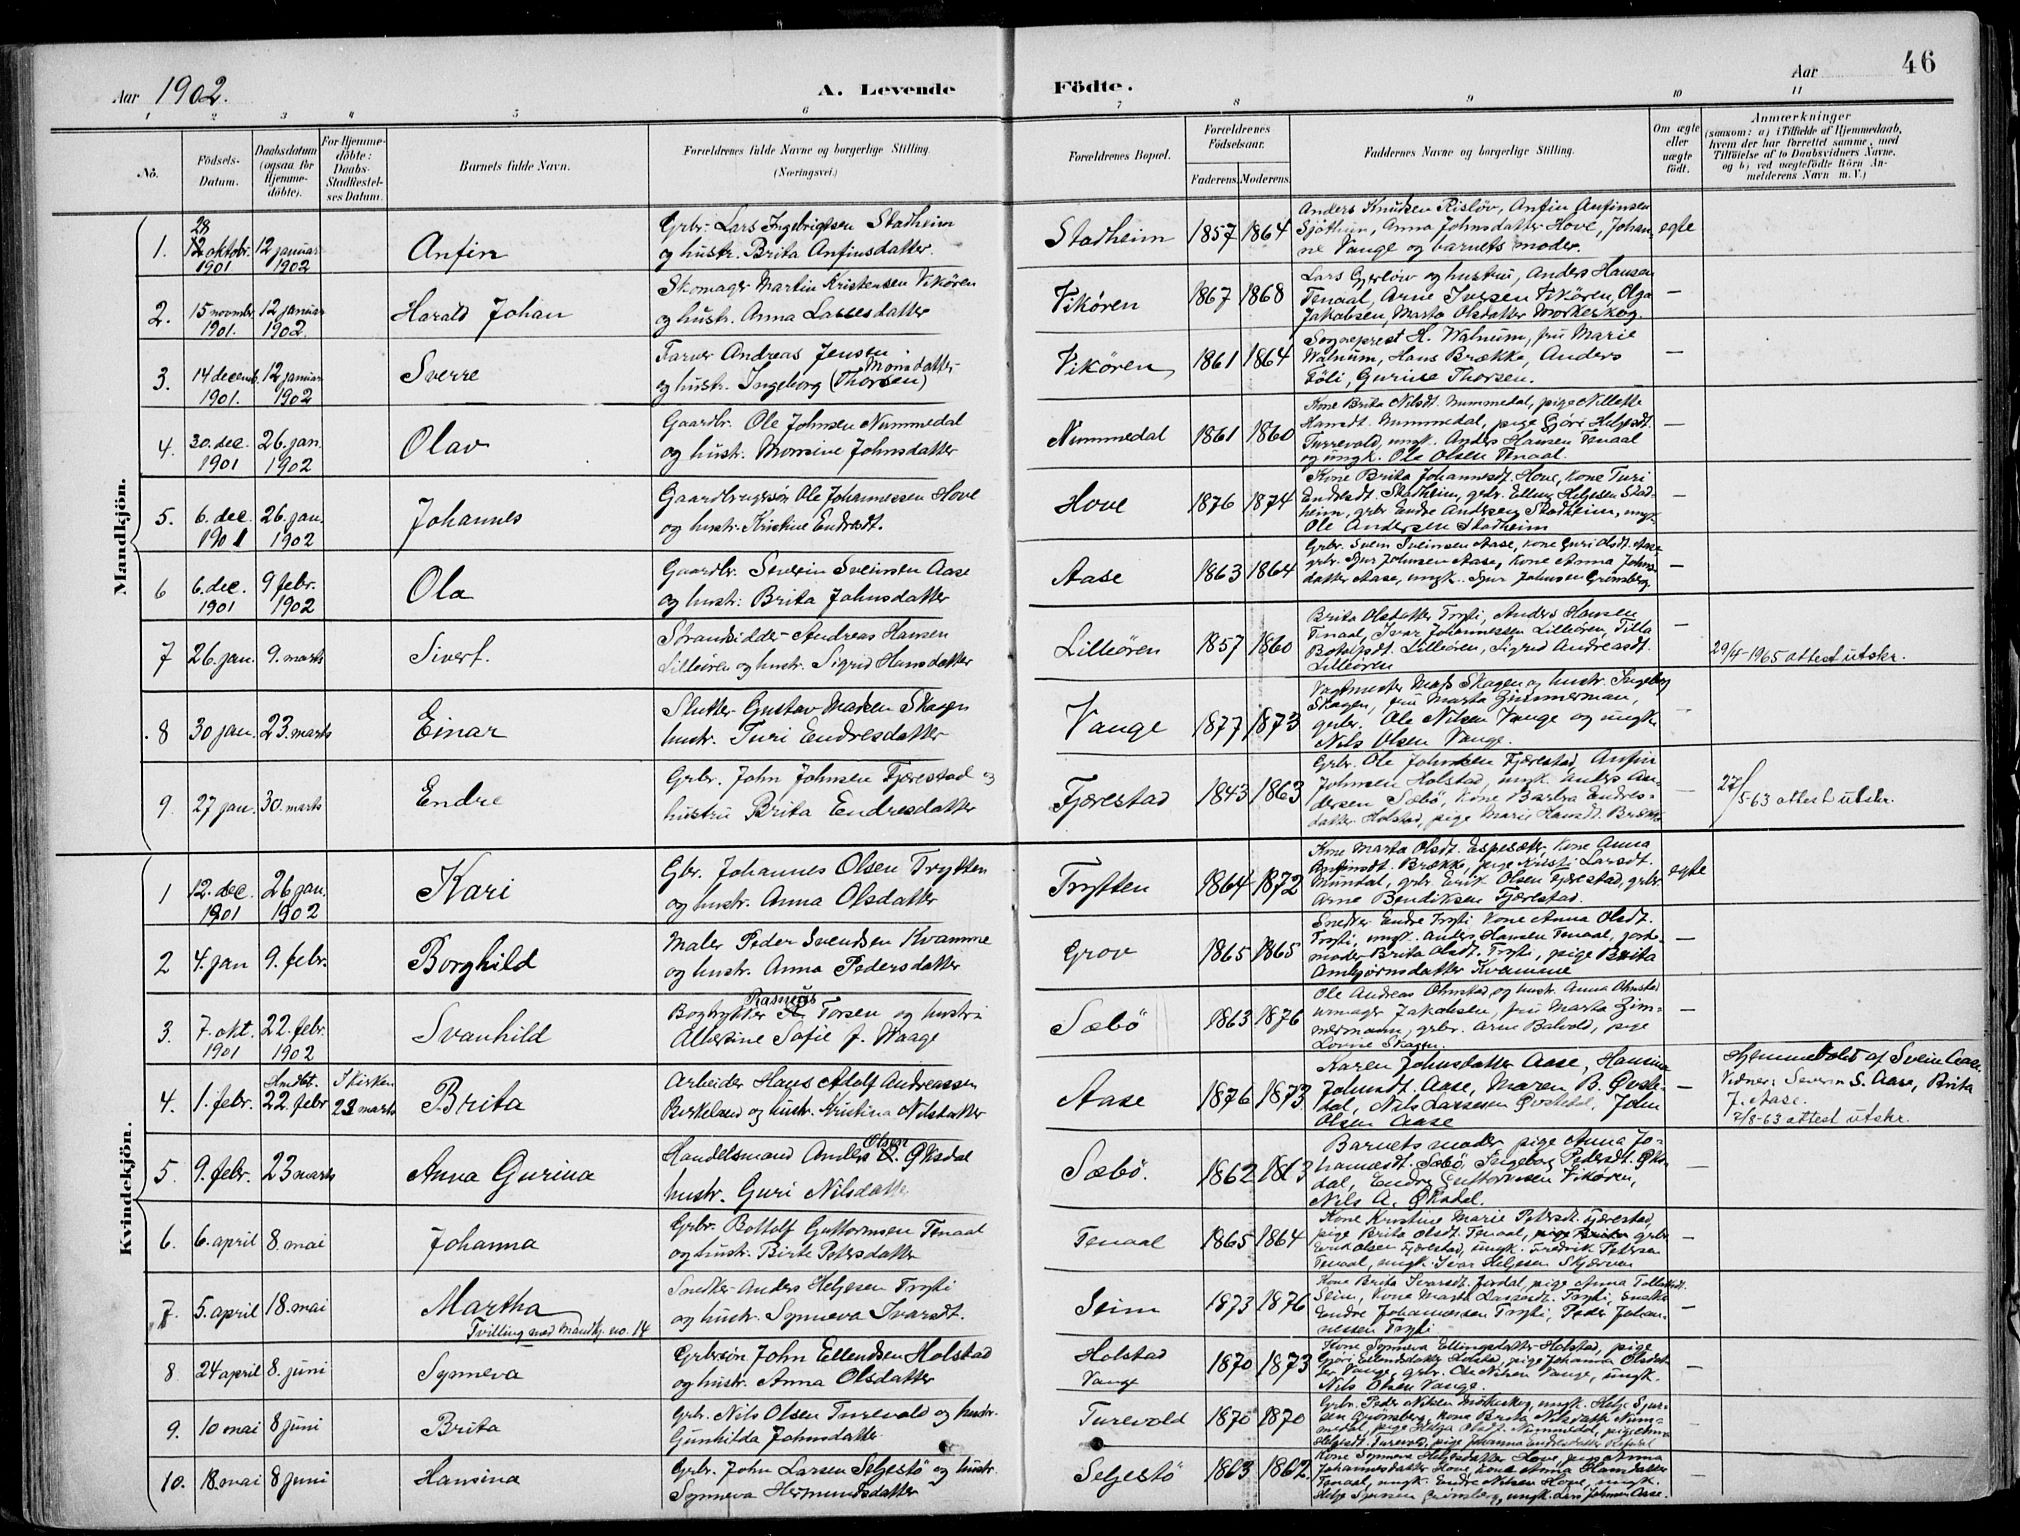 Aar 1902.
A. Levende
Födte.
Aar
46
1 2 3 4 5 6 7 8 9 10 11
No.
Födsels-Datum.
Daabsdatum (ogsaa for Hjemmedöbte).
For Hjemmedöbte: Daabs-Stadfæstelses Datum.
Barnets fulde Navn.
Forældrenes fulde Navne og borgerlige Stilling.
(Næringsvei.)
Forældrenes Bopæl.
Forældrenes Födselsaar.
Faderens. Moderens.
Faddernes Navne og borgerlige Stilling.
Om ægte eller uægte födt.
Anmærkninger
(saasom: a) i Tilfælde af Hjemmedaab,
hvem der har forrettet samme, med
Tilföielse af to Daabsvidners Navne,
og b) ved uægtefödte Börn Anmelderens Navn m. V.)
Mandkjön.
1. 28 oktobr. 1901 12 januar 1902 Anfin
Grbr. Lars Ingebrigtsen Stadheim
og hustr. Brita Anfinsdatter.
Stadheim 1857 1864
Anders Knutsen Rislöv, Anfin Anfinsen
Sjöthun, Anna Johnsdatter Hove, Johan
ne Vange og barnets moder.
egte
2. 15 novmbr 1901. 12 januar 1902. Harald Johan
Skomager Martin Kristensen Vikören
og hustr. Anna Lassesdatter
Vikören 1867 1868
Lars Gjerlöw og hustru, Anders Hansen
Tenaal, Arne Iversen Vikören, Olga
Jakobsen, Marta Olsdatter Morkeskog.
—
3. 14 decemb. 1901. 12 januar 1902 Sverre
Farver Andreas Jensen
og hustr. Ingeborg Monsdatter (Thorsen)
Vikören 1861 1864
Sogneprest H. Walnum, fru Marie
Walnum, Hans Brække, Anders
Föli, Gurine Thorsen.
—
4. 30. dec. 1901 26. jan. 1902 Olav
Gaardbr. Ole Johnsen Nummedal
og hustr. Monsine Johnsdatter
Nummedal 1861 1860
Kone Brita Nilsdt. Nummedal, pige Nillette
Hansdt. Nummedal, pige Gjöri Helgesdt.
Turrevold, ungk. Anders Hansen Tenaal
og ungk. Ole Olsen Tenaal.
—
5. 6. dec. 1901 26. jan. 1902 Johannes
Gaardbrugersön Ole Johannessen Hove
og hustr. Kristine Endresdt.
Hove 1876 1874
Kone Brita Johannesdt. Hove, Kone Turi
Endresdt. Stadheim, grbr. Elling Helgesen Stad-
heim, grbr Endre Andersen Stadheim, ungk.
Ole Andersen Stadheim
—
6 6. dec. 1901 9 febr. 1902 Ola
Gaardbr. Severin Sveinsen Aase
og hustr: Brita Johnsdatter
Aase 1863 1864
Grbr. Svein Sveinsen Aase, Kone Guri Olsdt. Aase
grbr. Sjur Johnsen Aase, Kone Anna Johns-
datter Aase, ungk. Sjur Johnsen Grönsberg.
—
7 26. jan. 9. marts Sivert.
Strandsidder Andreas Hansen
Lilleören og hustr. Sigrid Hansdatter
Lilleören 1857 1860
Brita Olsdatter Tryti, Anders Hansen
Tenaal, Ivar Johannessen Lilleören, Tilla
Botolfsdt. Lilleören, Sigrid Andreasdt.
Lilleören
—
29/4-1965 attest utskr.
8 30 jan. 23. marts Einar
Slutter Gustav Madsen Skagen
hustr. Turi Endresdatter
Vange 1877 1873
Vagtmester Mads Skagen og hustr. Ingeborg
Skagen, fru Marta Zimmerman,
grbr. Ole Nilsen Vange og ungk.
Nils Olsen Vange.
—
9. 27 jan. 30. marts Endre
Grbr. John Johnsen Fjærestad og
hustru Brita Endresdatter
Fjærestad 1843 1863
Grbr. Ole Johnsen Fjærestad, Anfin
Johnsen Holstad, ungk. Anders An-
dersen Sæbö, Kone Barbra Endres-
datter Holstad, pige Marie Hansdt. Brække
—
27/5-63 attest utskr.
Kvindekjön.
1 12. dec. 1901 26 jan. 1902 Kari
Gbr. Johannes Olsen Trytten
og hustr. Anna Olsdatter
Trytten 1864 1872
Kone Marta Olsdt. Espesæter, Kone Anna
Anfinsdt. Brække, pige Kristi Larsdt.
Mundal, grbr Erik Olsen Fjærestad, grbr.
Arne Bendiksen Fjærestad.
egte
2 4. jan 9. febr. Borghild
Maler Peder Svendsen Kvamme
og hustr. Anna Pedersdatter
Grov 1865 1865
Snedker Endre Tryti Kone Anna Olsdt.
Tryti, ungk. Anders Hansen Tenaal, jorde-
moder Brita Olsdt. Tryti, pige Brita
Ambjörnsdatter Kvamme
—
3. 7. okt. 1901 22. febr. 1902 Svanhild
Bogtrykker Rasmus Torsen og hustr.
Albertine Sofie f. Waage
Sæbö 1863 1876
Ole Andreas Ohnstad og hustr. Anna Ohnstad
urmager Jakobsen, fru Marta Zim-
mermann, grbr. Arne Balvold, pige
Lovise Skagen.
4. 1. febr. Hmdbt. 22. febr I Kirken 23 marts Brita
Arbeider Hans Adolf Andreassen
Kirkeland og hustr. Kristina Nilsdatter
Aase 1876 1873
Karen Johnsdatter Aase, Hansina
Johnsdt. Aase, Maren B. Øvste-
dal, Nils Lassesen Øvstedal, John
Olsen Aase
—
Hjemmedöbt af Svein Aase
Vidner: Severin S. Aase, Brita
J. Aase.
2/8-63 attest utskr.
5. 9. febr. 23 marts Anna Gurina
Handelsmand Anders Olsen Øksdal
hustr. Guri Nilsdatter
Sæbö. 1862 1863
Barnets moder, pige Anna Jo-
hannesdt. Sæbö, Ingeborg Pedersdt. Øks-
dal, Endre Guttormsen Vikören,
Nils A. Øksdal.
—
6. 6. april 8. mai Johanna
Grbr. Bottolf Guttormsen Tenaal
og hustr. Birte Petersdatter
Tenaal 1865 1864
Kone Kristine Marie Petersdt. Fjærestad,
pige Brita Olsdt. Tenaal, grbr
Erik Olsen Fjærestad, ungk. Fredrik Petersen
Tenaal, ungk. Ivar Helgesen Skjærven
—
7 5. april 18. mai Martha
Tvilling med Mandkj. no. 14
Snedker Anders Helgesen Tryti
og hustr. Synneva Ivarsdt.
Seim 1873 1876
Kone Brita Ivarsdt. Jordal, pige Anna Tollefsdt.
Seim, Kone Marta Larsdt. Tryti, Enke
Endre Johannessen Tryti, Peder Johan-
nessen Tryti
—
8. 24 april 8. juni Synneva
Grbrsön John Ellendsen Holstad
og hustr. Anna Olsdatter
Holstad Vange 1870 1873
Kone Synneva Ellingsdatter Holstad, pige
Gjöri Ellendsdatter Holstad, pige Johanna Olsdat-
ter Vange, grbr. Ole Nilsen Vange, ungk.
Nils Olsen Vange.
—
9. 10 mai 8 juni Brita
Grbr. Nils Olsen Turevold og hustr.
Gunhilda Johnsdatter
Turevold 1870 1870
Grbr. Peder Nilsen Mörkeskog, ungk. Helje Sjur-
sen Grönsberg, Kone Brita Nilsdatter Num-
medal, pige Helga Olsdt. Nummedal, pige Anna
Helgesdt. Turevold, pige Johanna Endresdatter
—
10. 18. mai 8 juni Hansina
Grbr. John Larsen Seljestö og hustr.
Synneva Hermundsdatter
Seljestö 1863 1862
Kone Synneva Helgesdatter Hove, pige Anna
Johannesdatter Hove, Kone Anna Hansdatter
Tenaal, ungk. Endre Nilsen Hove, ungk.
Helje Sjursen Grönsberg, ungk. Lars Johnsen Aase.
—